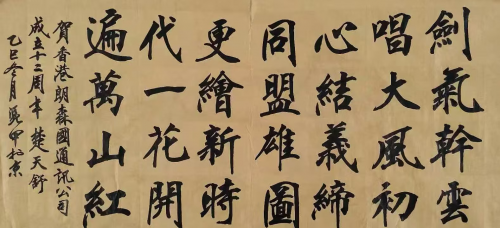 劍氣幹雲
唱大風初
心結義締
同盟雄圖
更繪新時
代一花開
遍萬山紅
賀香港朗森國通訊公司
成立十二周年 楚天舒
乙巳冬月 於京